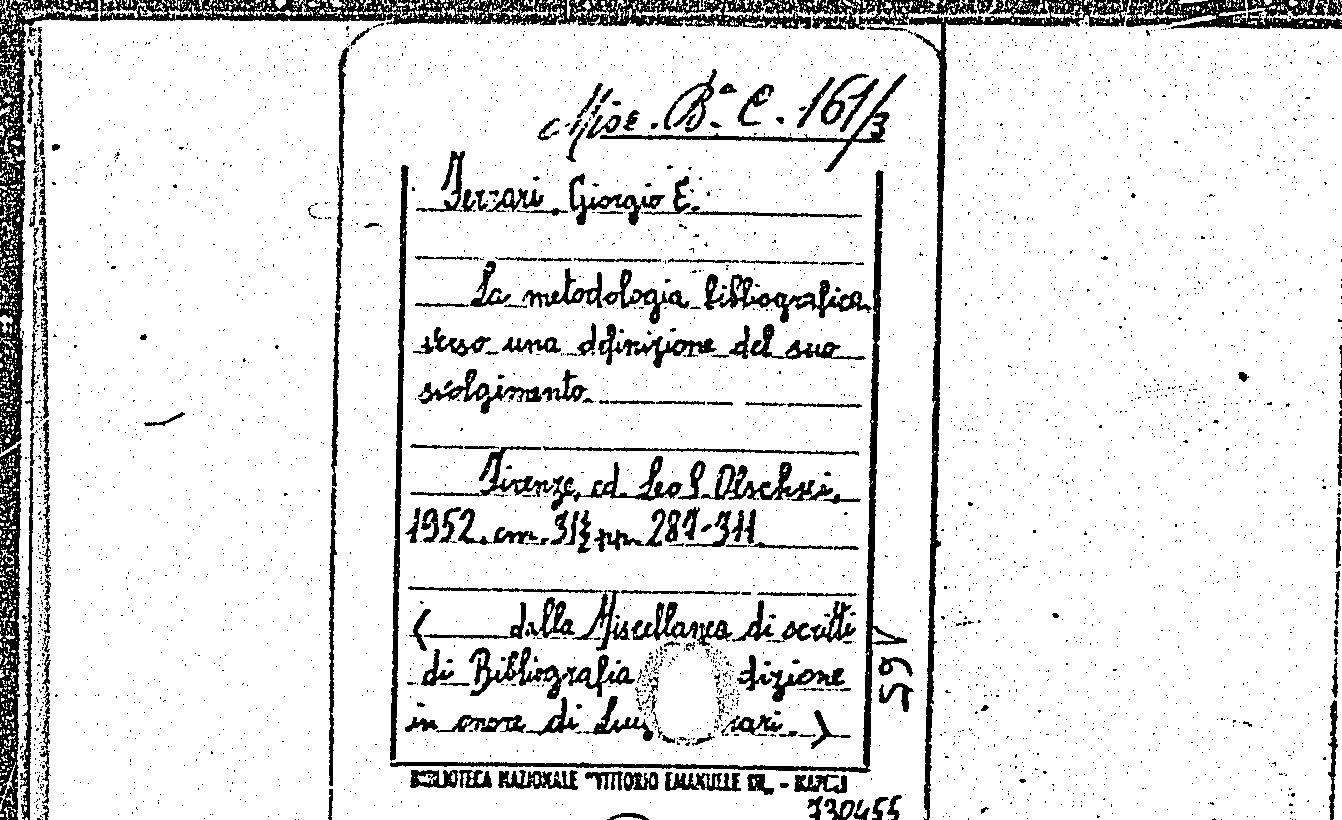 Misc. Bª C. 161/3
Ferrari. Giorgio E.
La metodologia bibliografica
verso una definizione del suo
svolgimento.
Firenze, ed. Leo S. Olschki,
1952. cm. 31½ pp. 287-311.
( dalla Miscellanea di scritti
di Bibliografia dizione
in onore di
BIBLIOTECA NAZIONALE "VITTORIO EMANUELE III" - NAPOLI
730455